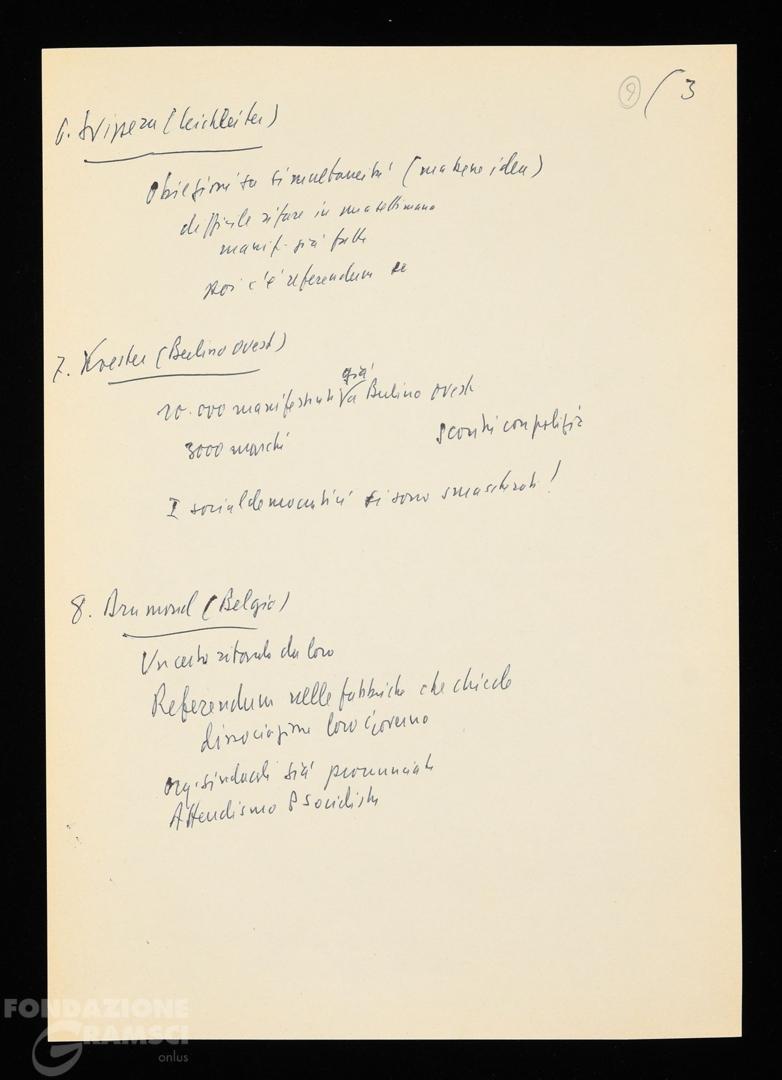 9 ( 3
6. Svizzera (Leichleiter)
Obiezioni su simultaneità (ma bene idea)
difficile rifare in una settimana
manif. già fatte
poi c'è referendum
7. Koester (Berlino ovest)
già
20.000 manifestanti a Berlino ovest
3000 marchi scontri con polizia
I socialdemocratici si sono smascherati!
8. Brumond (Belgio)
Un certo ritardo da loro
Referendum nelle fabbriche che chiede
dissociazione loro governo
org. sindacali già pronunciate
Attendismo P socialista
FONDAZIONE
GRAMSCI
onlus